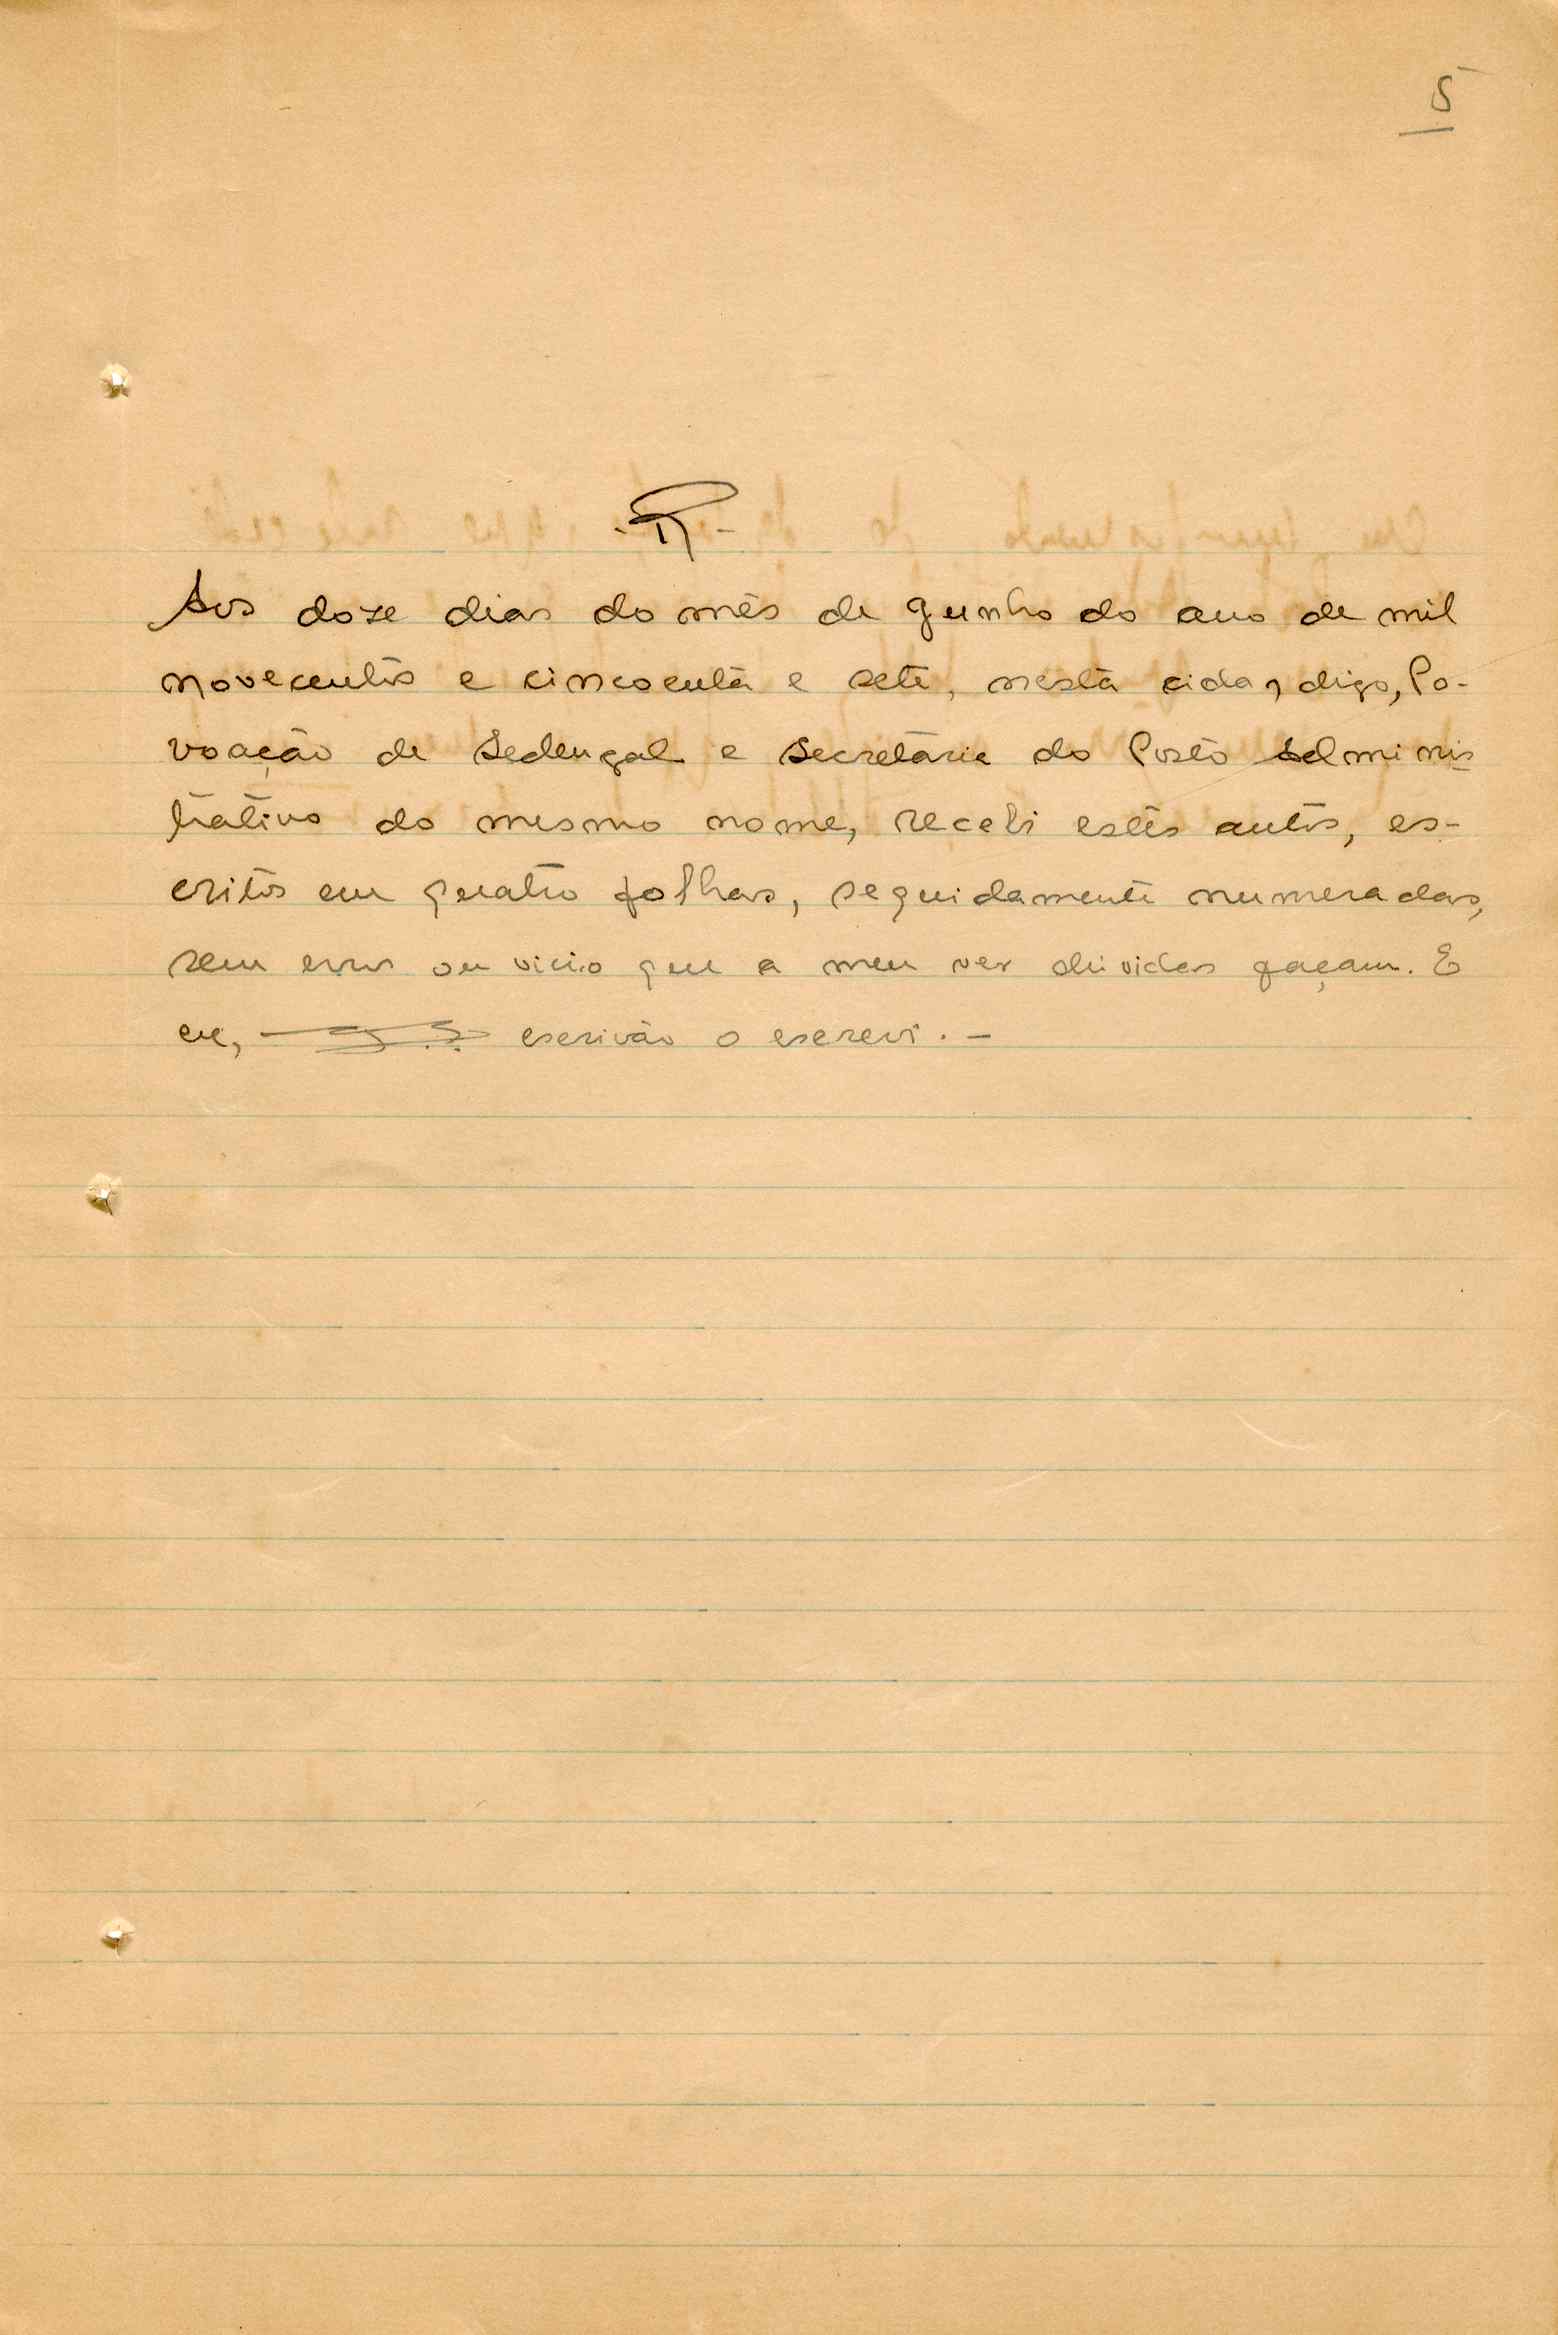 5
.R-
Aos doze dias do mês de Junho do ano de mil
novecentos e cincoenta e sete, nesta cida, digo, Po-
voação de Sedengal e Secretária do Posto Adminis
trativo do mesmo nome, recebi estes autos, es-
critos em quatro folhas, seguidamente numeradas,
sem erros ou vicio que a meu ver dúvidas façam. E
eu, escrivão o escrevi. -